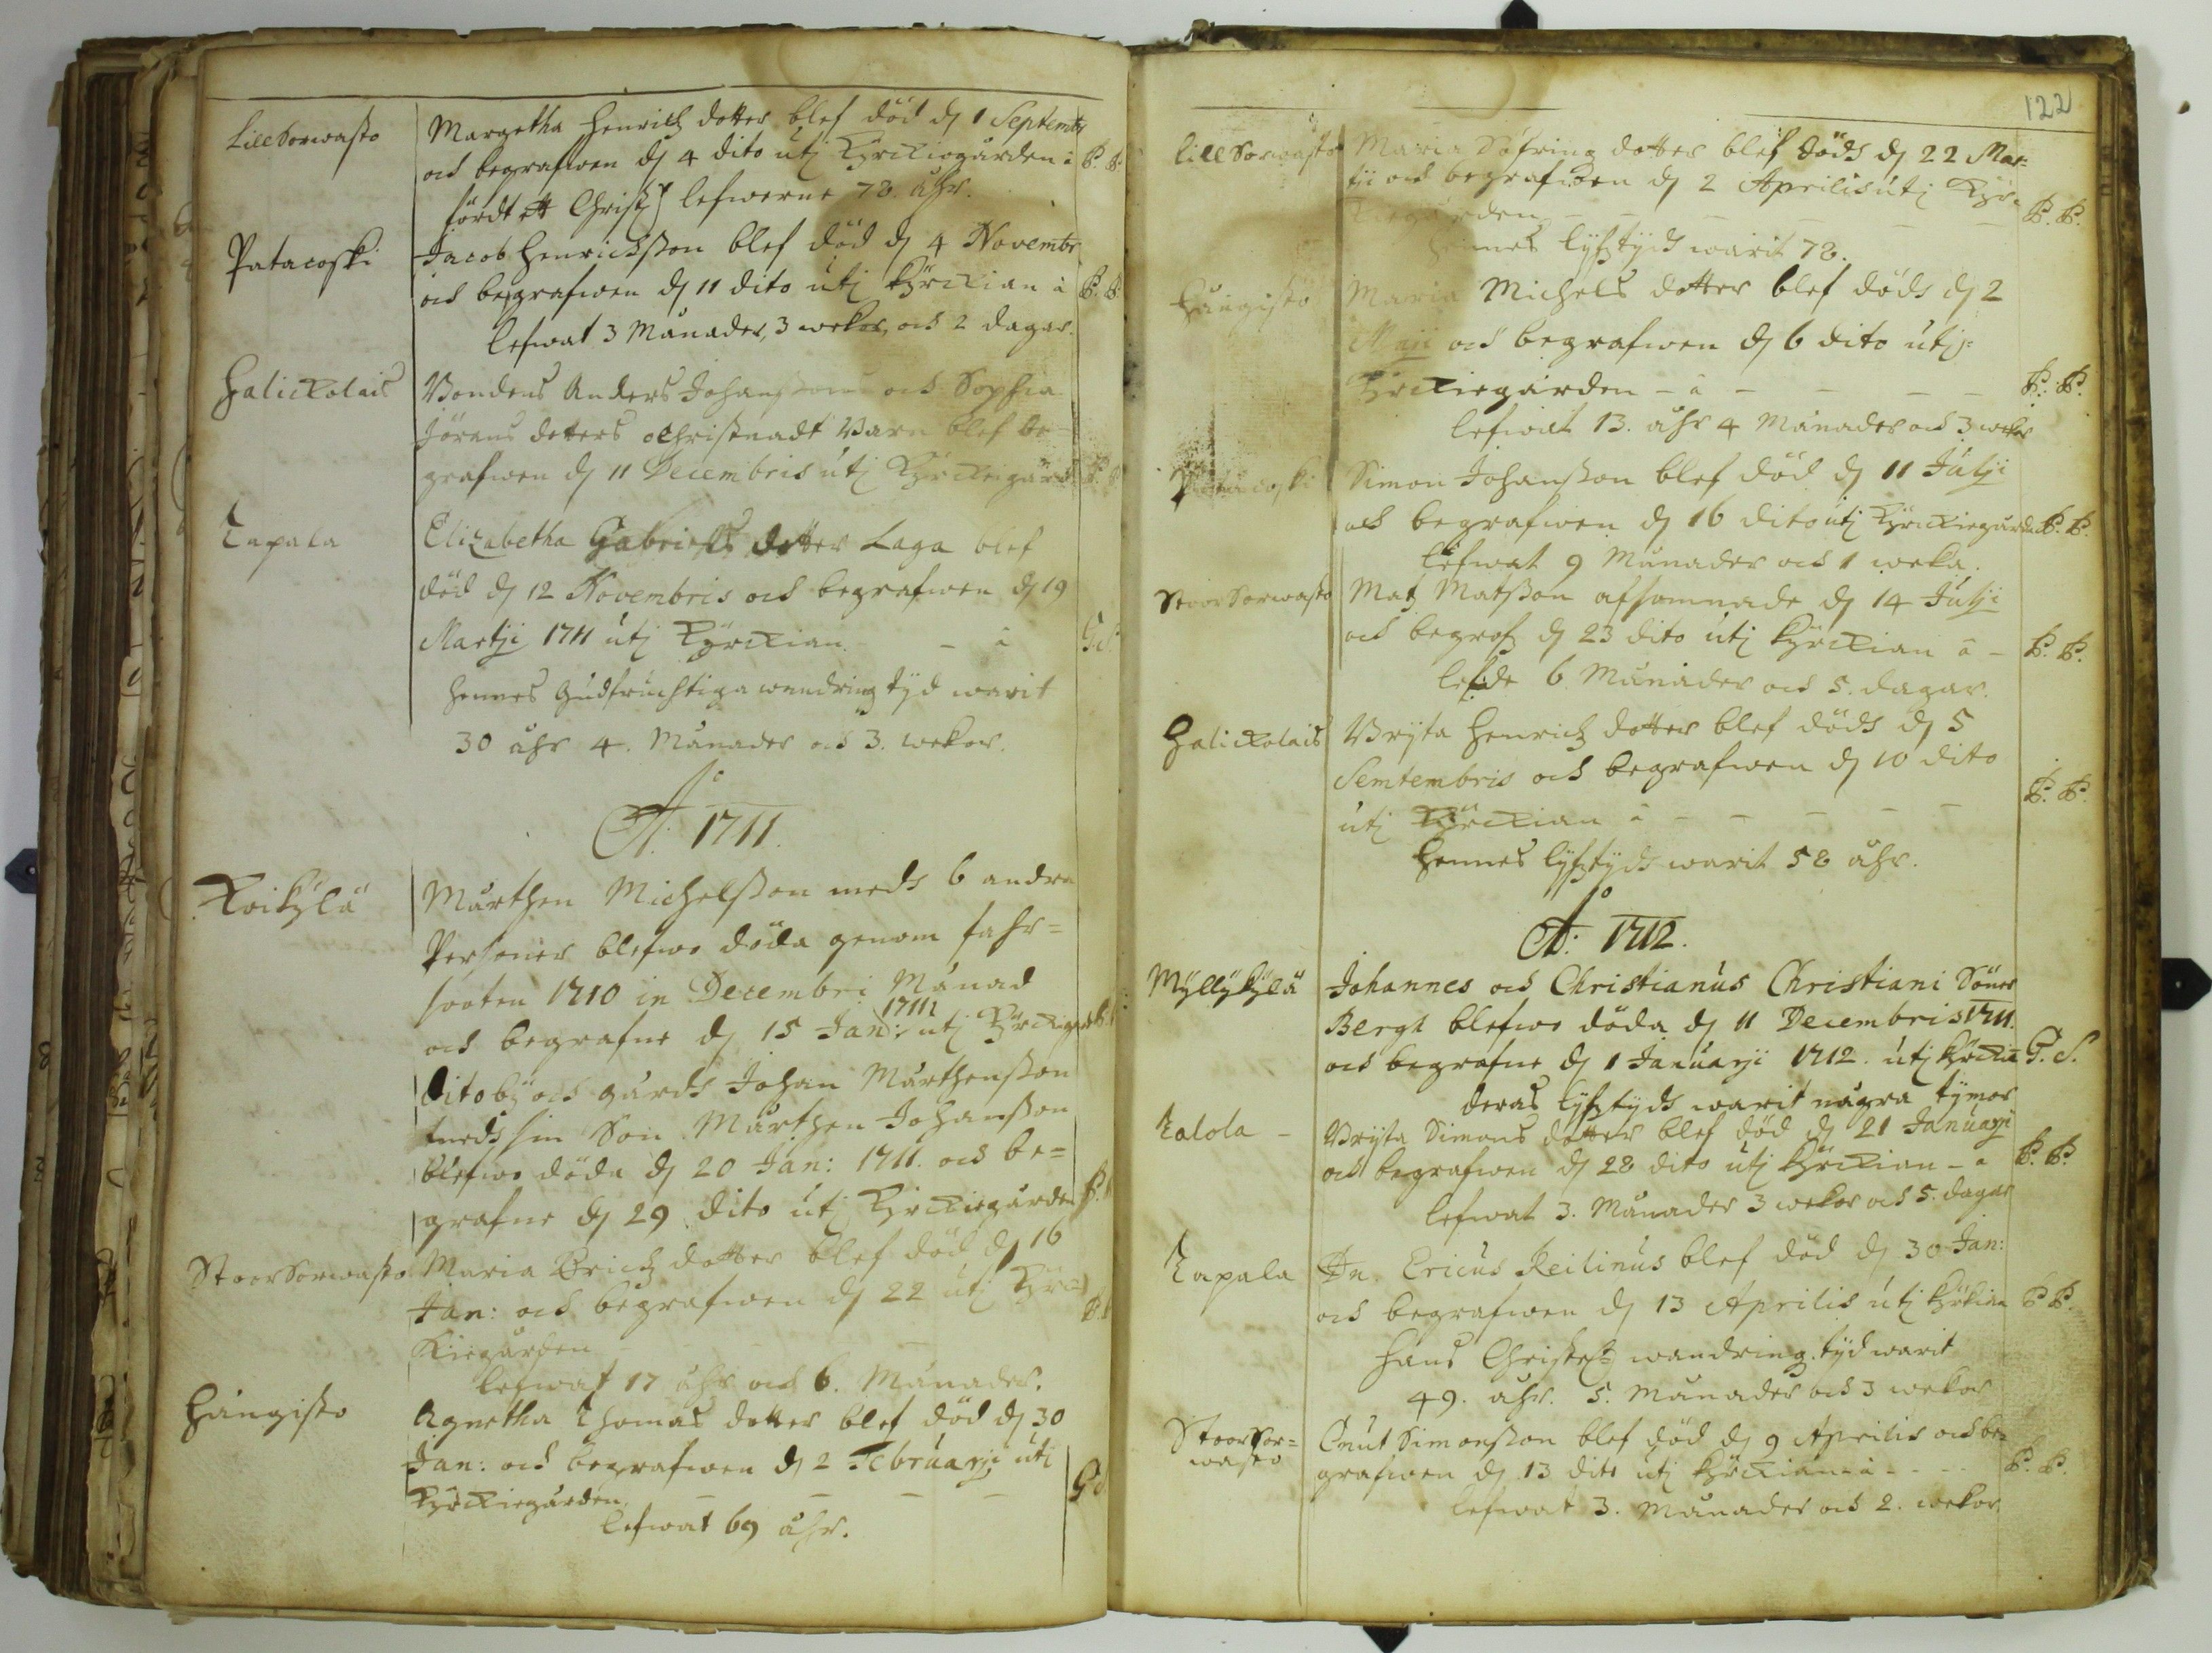 Lill Sorwasto Margetha Henrichz dotter blef död dj 1 Septembr
och begrafwen dj 4 dito utj Kyrckiogården i B. B.
fördt ett Christ: lefwerne 78. åhr.
Patacoski Jacob Henrichsson blef död dj 4 Novembr
och begrafwen dj 11 dito utj Kyrckian i B. B.
lefwat 3 Månader, 3 wekor, och 2 dagar.
Halickolais Bondens Anders Johanssons och Sophia
Jörans dotters ochristnadt Barn blef be-
grafwen dj 11 Decembris utj Kyrckiegård
Tapala Elizabetha Gabriels dotter Laga blef
död dj 12 Novembris och begrafwen dj 19
Martji 1711 utj Kyrckian. - i G. S.
Hennes Gudfruchtiga wandring tyd warit
30 åhr 4. Månader och 3. wekor.
Ao: 1711.
Koikylä Mårthen Michelsson meds 6 andra
Personer blefwo döda genom fahr=
sooten 1710 in Decembri Månad
1711
och begrafne dj 15 Jan: utj Kyrckiegård
dito by och gårds Johan Mårthensson
meds sin Son Mårthen Johansson
blefwo döda dj 20 Jan: 1711. och be=
grafne dj 29 dito utj Kyrckiegården B.
Stoor Sorwasto Maria Erichz dotter blef död dj 16
Jan: och begrafwen dj 22 utj Kyrc=
kiegården
lefwat 17 åhr och 6. Månader.
Hangisto Agnetha Thomas dotter blef död dj 30
Jan: och begrafwen dj 2 Februarji utj
Kyrckiegården. - - - - G
lefwat 69 åhr.
122
Lill Sorwasto Maria Söfring dotter blef döds dj 22 Mar=
tii och begrafwen dj 2 Aprilis utj Kyrc
kiegården - - - - B. B.
Hennes lyfztyds warit 78.
Hangisto Maria Michels dotter blef döds dj 2
Maji och begrafwen dj 6 dito utj=
Kyrckiegården - i - - - - B. B.
lefwat 13. åhr 4 Månader och 3 wekor
Patacoski Simon Johansson blef död dj 11 Julji
och begrafwen dj 16 dito utj Kyrckiegården B. B.
lefwat 9 Månader och 1 weka.
Stoor Sorwasto Matz Matsson afsomnade dj 14 Julji
och begrofz dj 23 dito utj Kyrckian i - B. B.
lefde 6 Månader och 5. dagar.
Halickolais Bryta Henrichz dotter blef döds dj 5
Semtembris och begrafwen dj 10 dito
utj Kyrckian i - - - - - B. B.
Hennes lyfztyds warit 58 åhr.
Ao: 1712.
Myllykylä Johannes och Christianus Christiani Söner
Bergh blefwo döda dj 11 Decembris 1711.
och begrafne dj 1 Januarji 1712. utj Kyrckia G. S.
deras lyfztyds warit några tymor
Talola - Bryta Simons dotter blef död dj 21 Januarji
och begrafwen dj 28 dito utj Kyrckian - i B. B.
lefwat 3. Månader 3 wekor och 5. dagar
Tapala Dn. Ericus Reilinus blef död dj 30 Jan:
och begrafwen dj 13 Aprilis utj Kyrkian B B.
Hans Christel: wandring. tyd warit
49. åhr. 5. Månader och 3 wekor
Stoor Sor=
wasto Cnut Simonsson blef död dj 9 Aprilis och be=
grafwen dj 13 dito utj Kyrckian i - - - B. B.
lefwat 3. Månader och 2. wekor